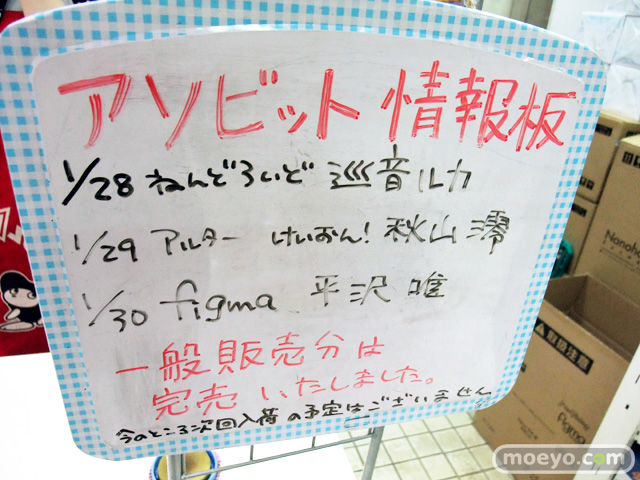 アソビット 情報板
1/28 ねんどろいど 巡音ルカ
1/29 アルター けいおん! 秋山澪
1/30 figma 平沢 唯
一般販売分は
完売いたしました。
今のところ次回入荷の予定はございません
取扱注意
moeyo.com